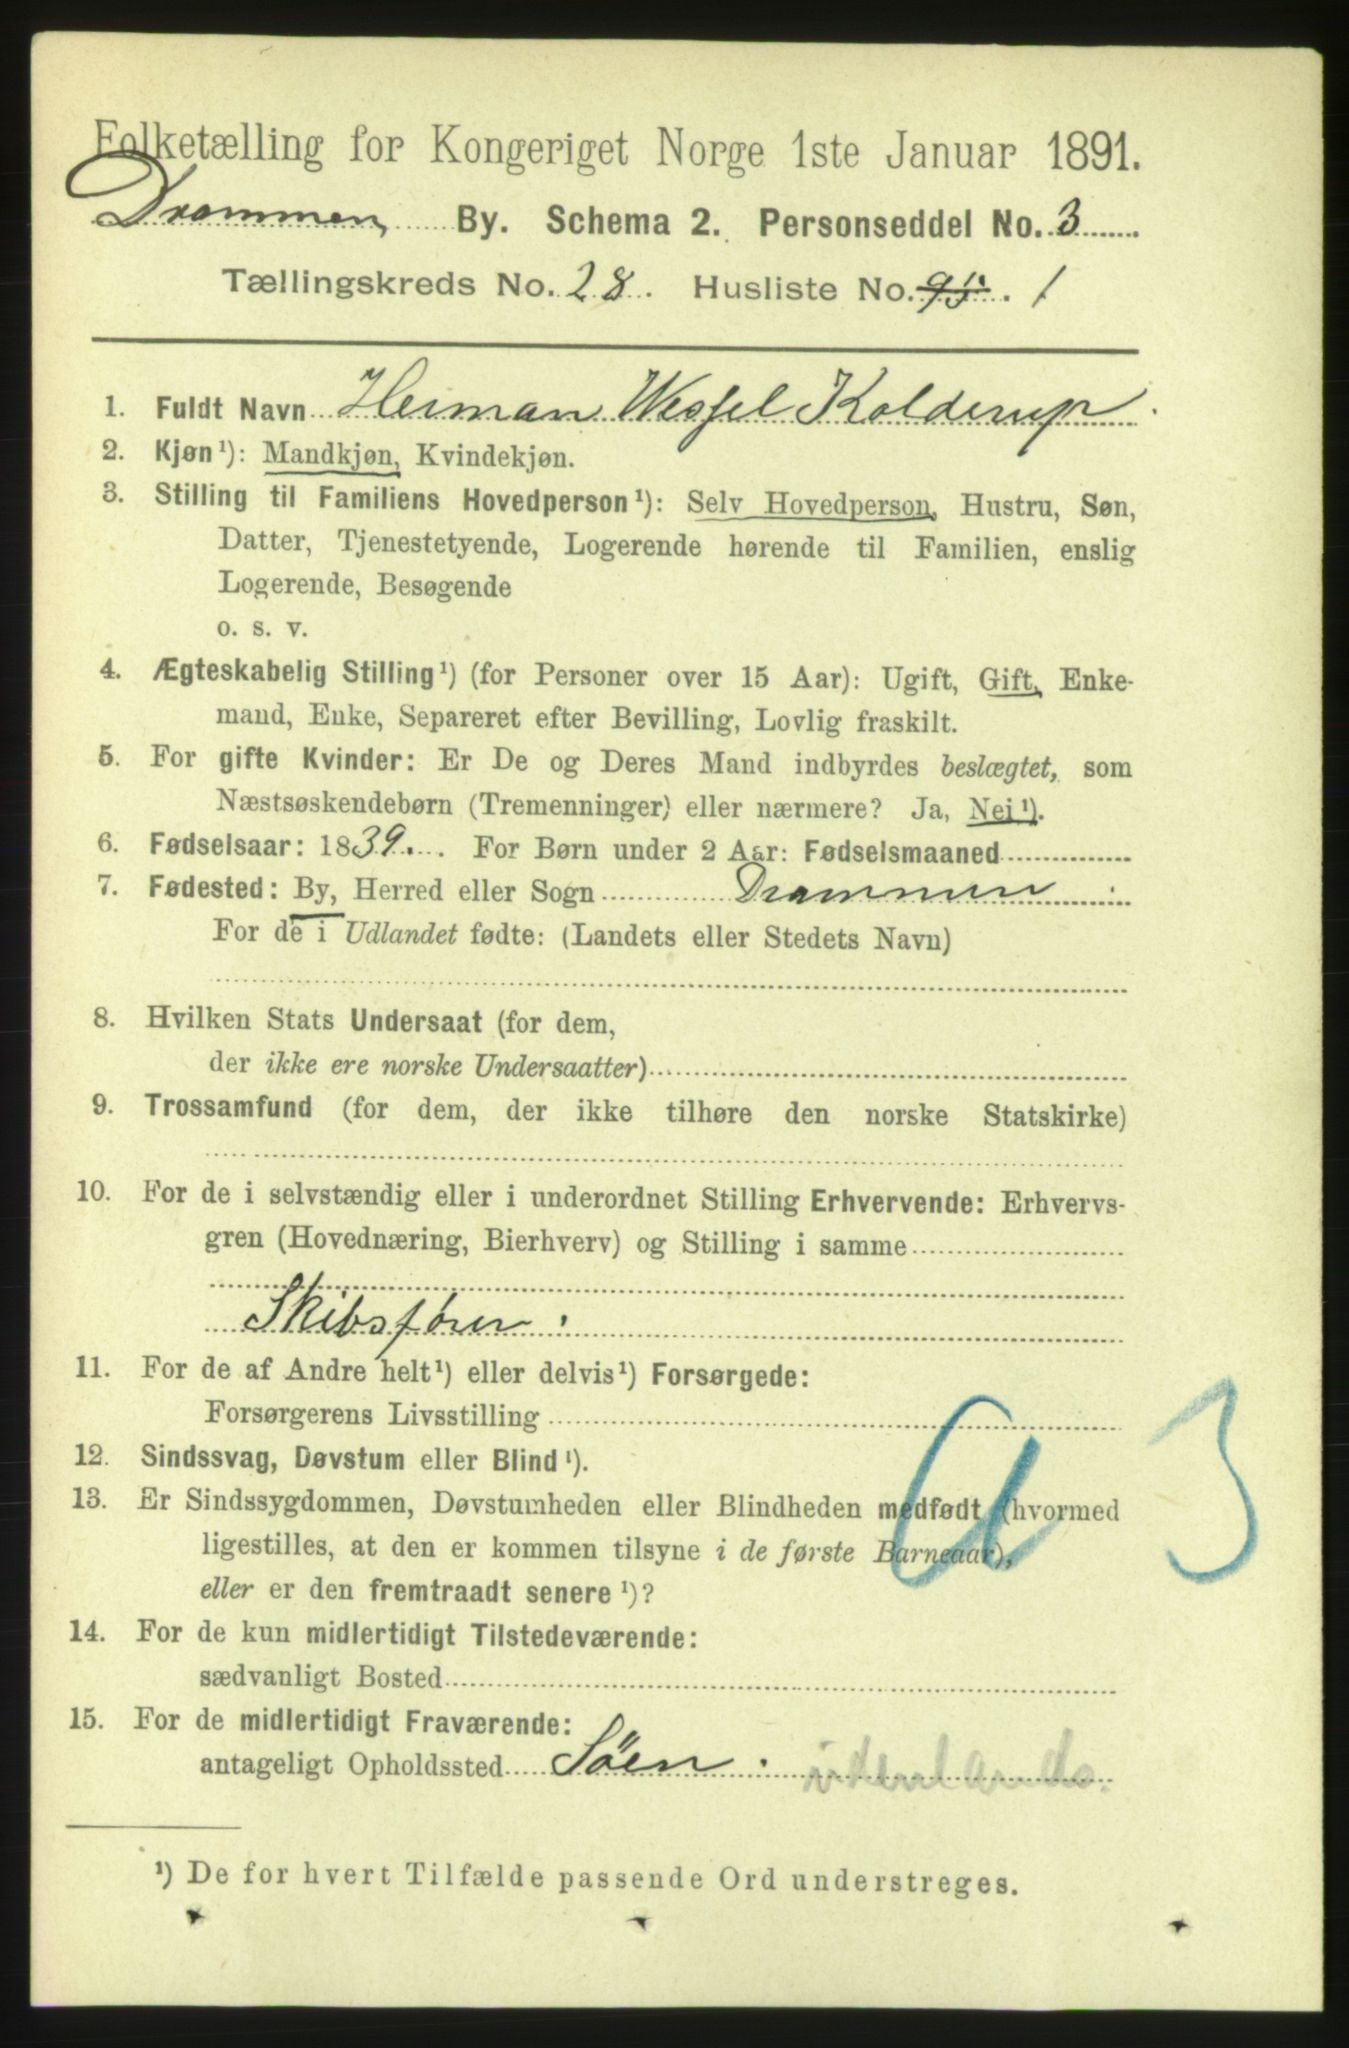 Folketælling for Kongeriget Norge 1ste Januar 1891.
Drammen By. Schema 2. Personseddel No. 3
Tællingskreds No. 28. Husliste No. 95. 1
1. Fuldt Navn Herman Wessel Kolderup.
2. Kjøn ¹): Mandkjøn, Kvindekjøn.
3. Stilling til Familiens Hovedperson ¹): Selv Hovedperson, Hustru, Søn,
Datter, Tjenestetyende, Logerende hørende til Familien, enslig
Logerende, Besøgende
o. s. v.
4. Ægteskabelig Stilling ¹) (for Personer over 15 Aar): Ugift, Gift, Enke-
mand, Enke, Separeret efter Bevilling, Lovlig fraskilt.
5. For gifte Kvinder: Er De og Deres Mand indbyrdes beslægtet, som
Næstsøskendebørn (Tremenninger) eller nærmere? Ja, Nei ¹).
6. Fødselsaar: 1839. For Børn under 2 Aar: Fødselsmaaned
7. Fødested: By, Herred eller Sogn Drammen
For de i Udlandet fødte: (Landets eller Stedets Navn)
8. Hvilken Stats Undersaat (for dem,
der ikke ere norske Undersaatter)
9. Trossamfund (for dem, der ikke tilhøre den norske Statskirke)
10. For de i selvstændig eller i underordnet Stilling Erhvervende: Erhvervs-
gren (Hovednæring, Bierhverv) og Stilling i samme
Skibsfører.
11. For de af Andre helt ¹) eller delvis ¹) Forsørgede:
Forsørgerens Livsstilling
12. Sindssvag, Døvstum eller Blind ¹).
13. Er Sindssygdommen, Døvstumheden eller Blindheden medfødt (hvormed
ligestilles, at den er kommen tilsyne i de første Barneaar),
eller er den fremtraadt senere ¹)?
a 3
14. For de kun midlertidigt Tilstedeværende:
sædvanligt Bosted
15. For de midlertidigt Fraværende:
antageligt Opholdssted Söen. utenlands.
¹) De for hvert Tilfælde passende Ord understreges.